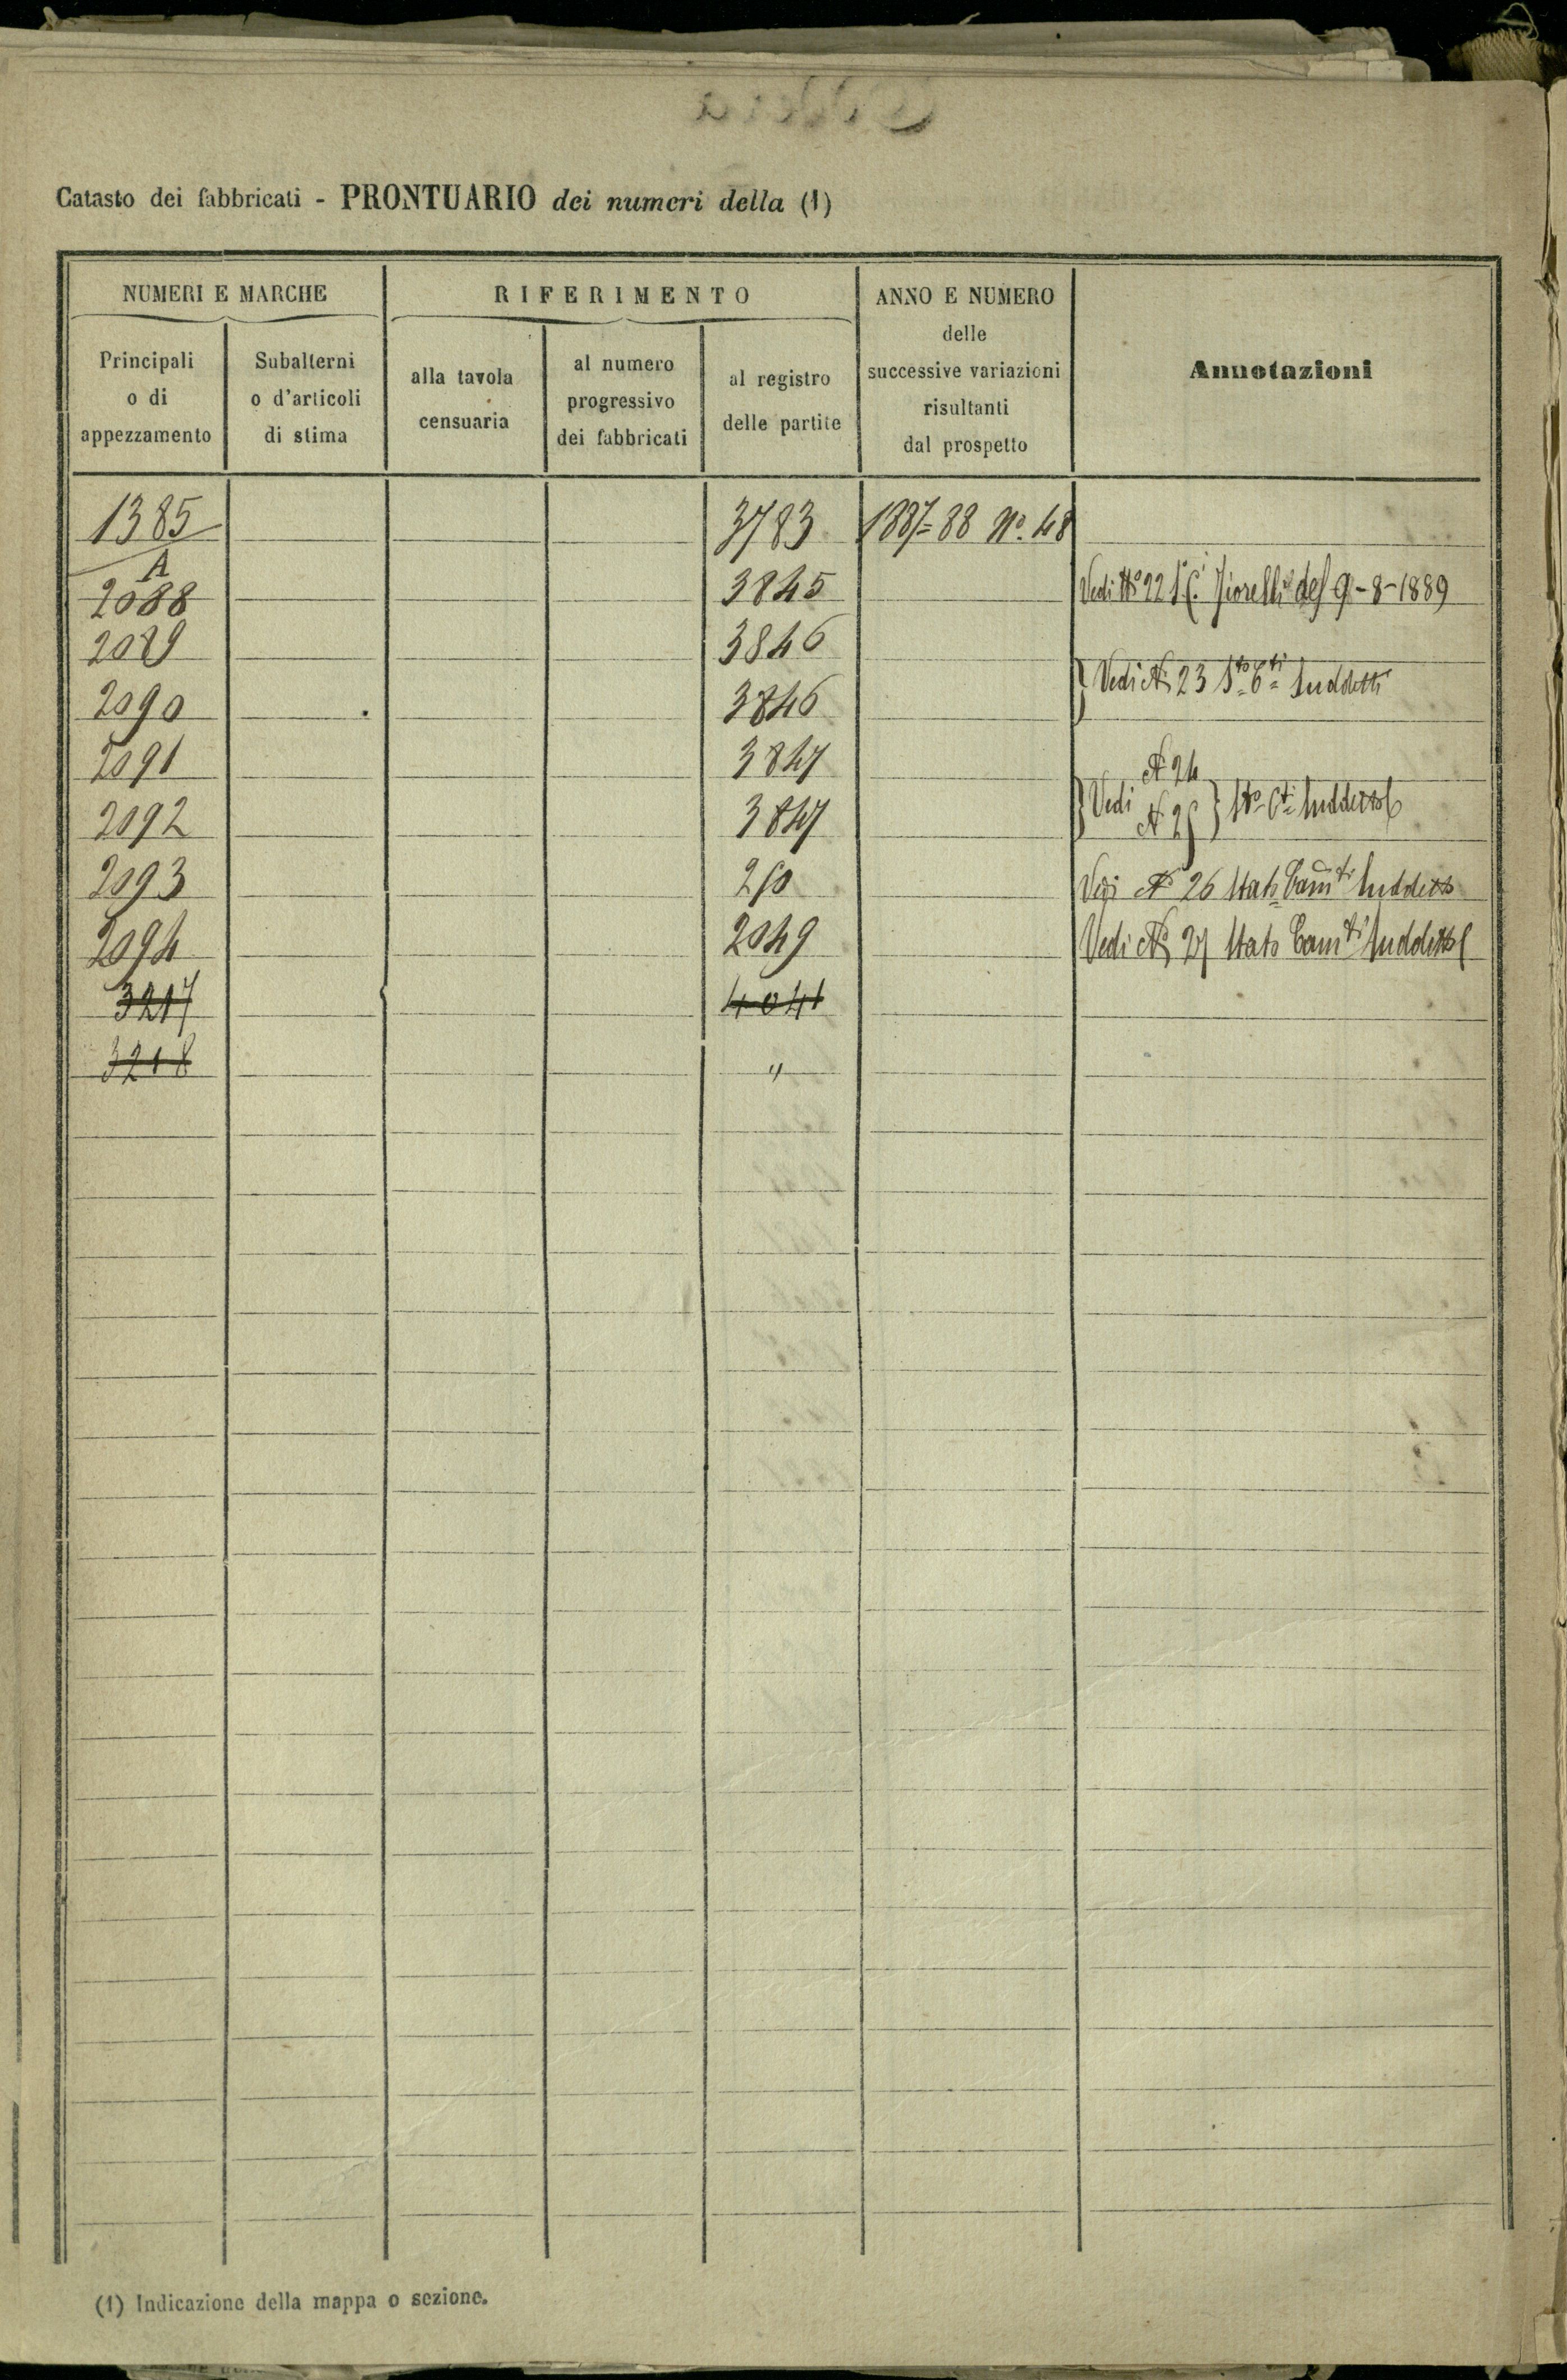 Catasto dei fabbricati - PRONTUARIO dei numeri della (1)
NUMERI E MARCHE
RIFERIMENTO
ANNO E NUMERO
delle
successive variazioni
risultanti
dal prospetto
Annotazioni
Principali
o di
appezzamento
Subalterni
o d'articoli
di stima
alla tavola
censuaria
al numero
progressivo
dei fabbricati
al registro
delle partite
1385 3783 1887=88 No. 48
A
2088 3845 Vedi No 22 Fiorelli del 9-8-1889
2089 3846
2090 3846 Vedi No 23 Suddetti
2091 3847 N 24
2092 3847 Vedi N 25 Suddetto
2093 250 Vedi No 26 Stato Suddetto
2094 2049 Vedi No 27 Stato Suddetto
3217 4041
3218 "
(1) Indicazione della mappa o sezione.